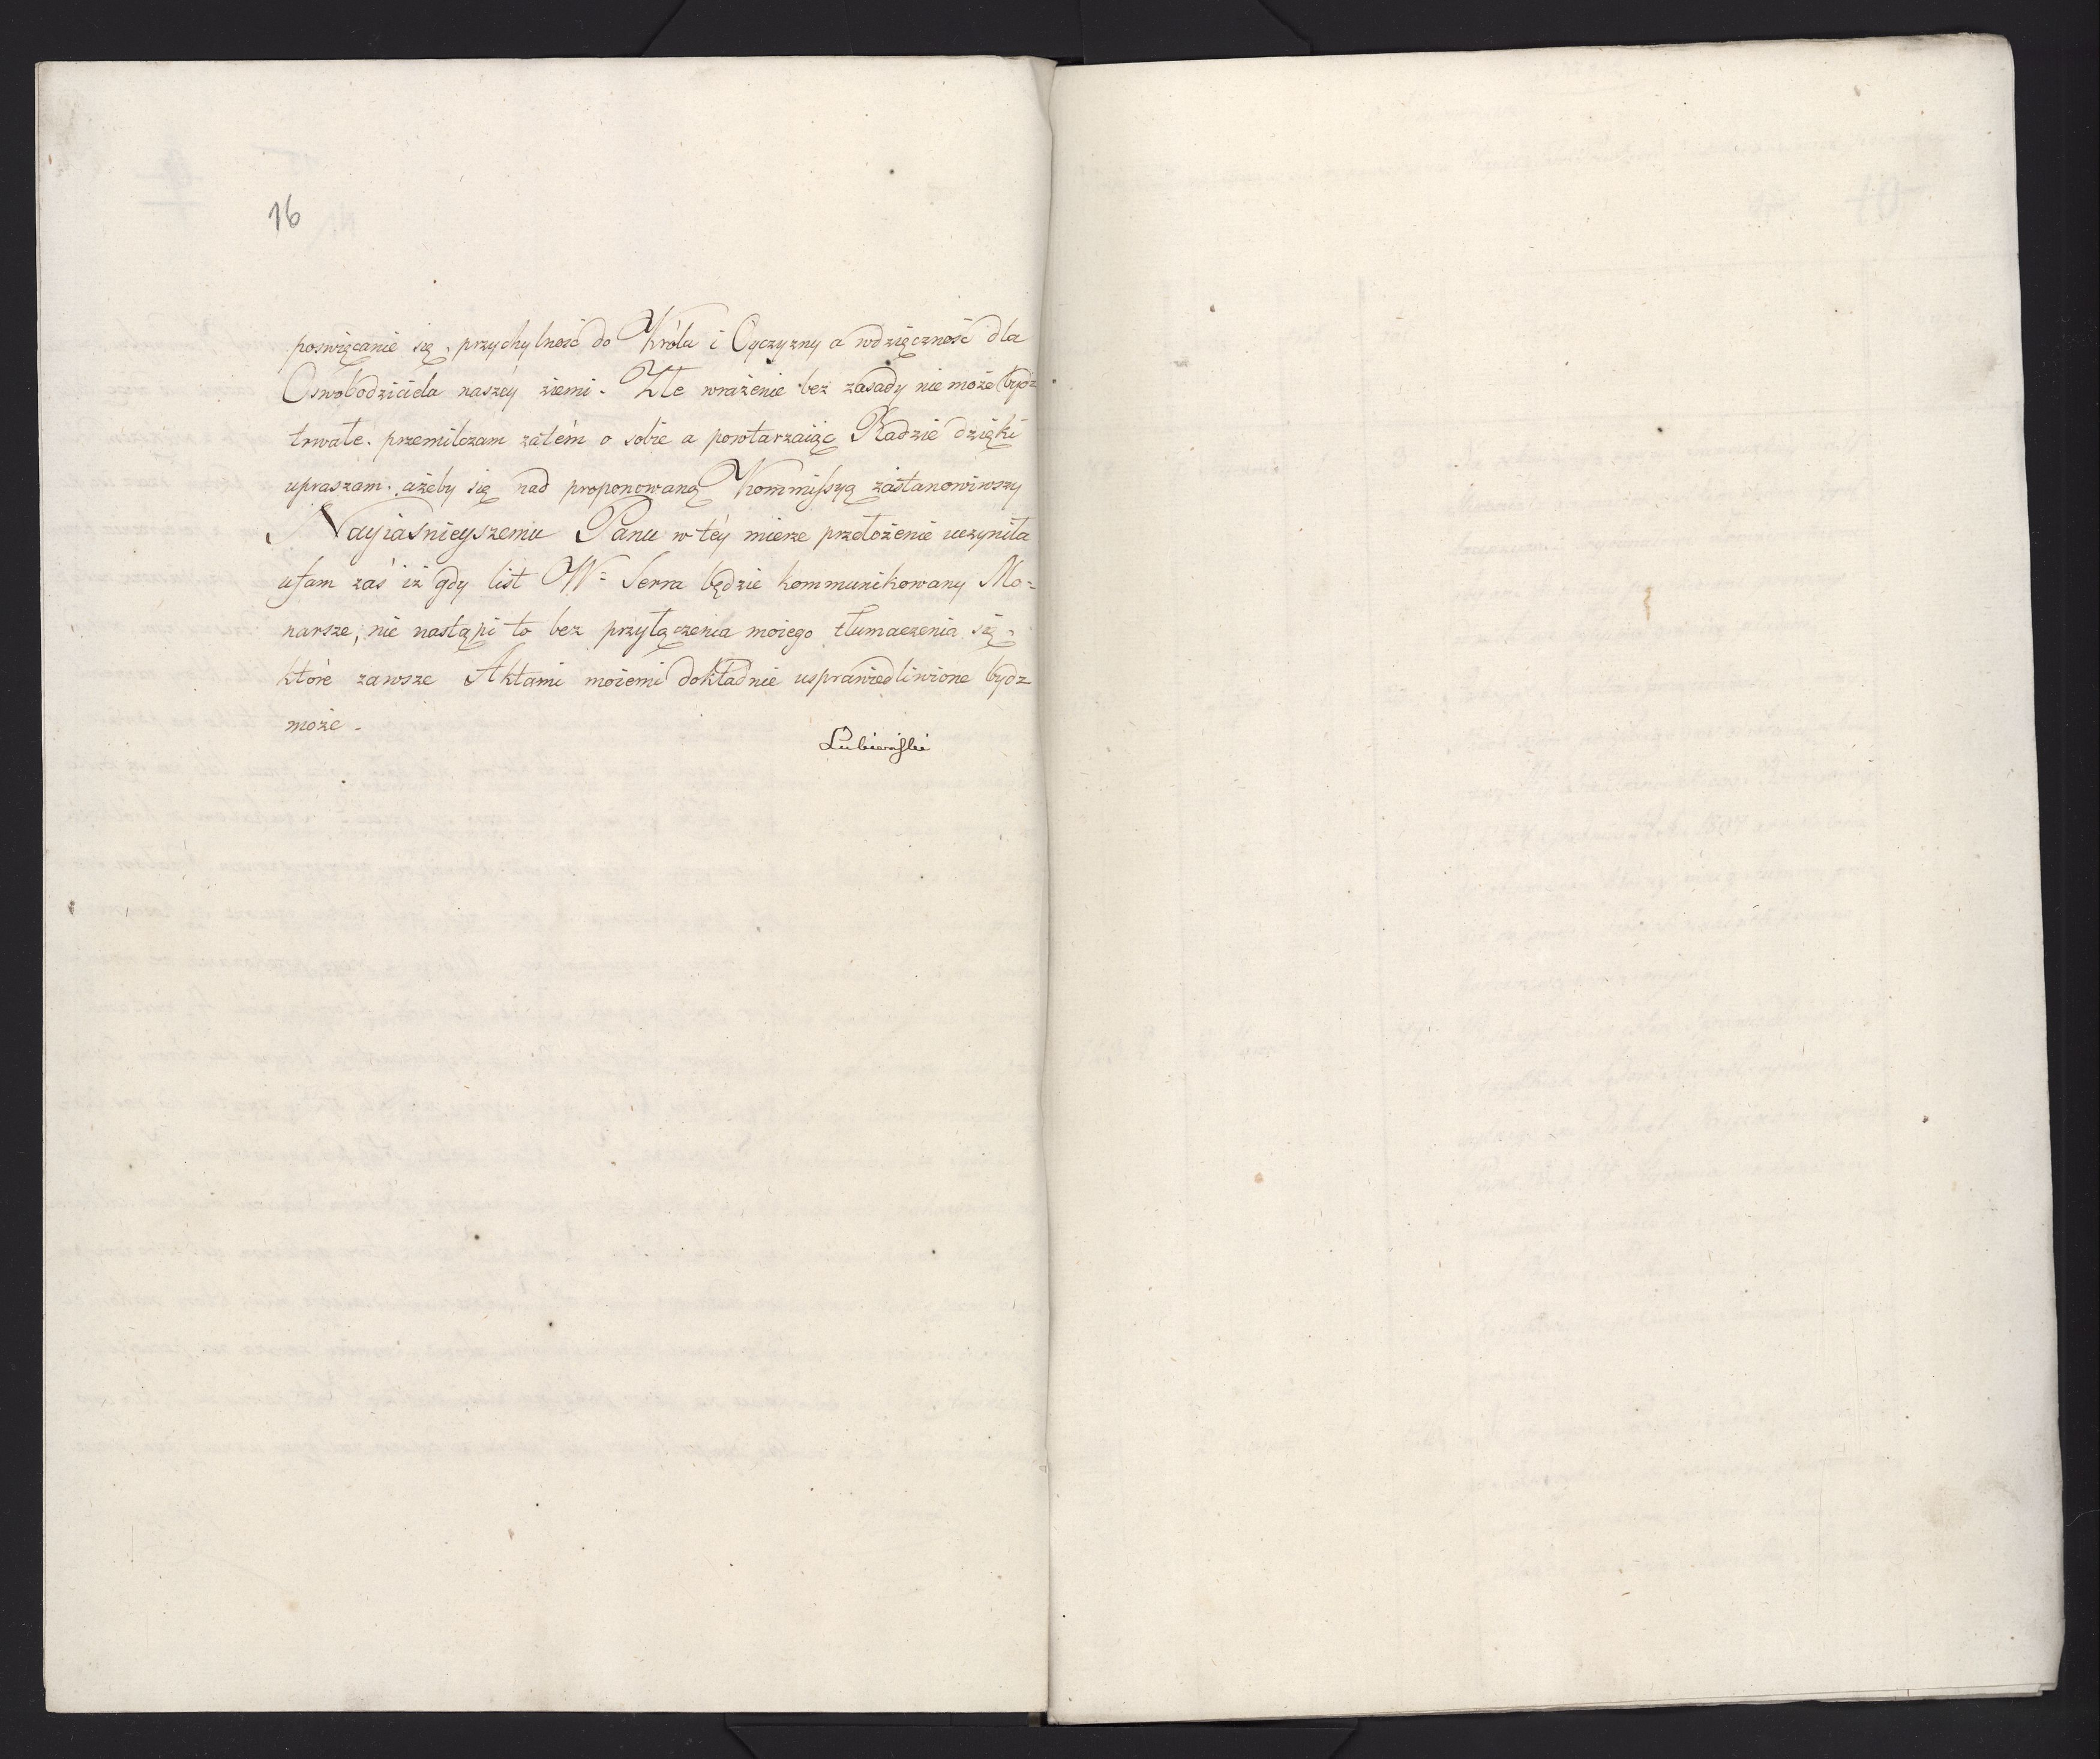 16
poswięcanie się, przychylność do Króla i Oyczyzny a wdzięczność dla
Oswobodziciela naszéy ziemi. Złe wrażenie bez zasady nie może bydź
trwałe. przemilczam zatém o sobie a powtarzaiąc Radzie dzięki
upraszam. ażeby się nad proponowaną Kommissyą zastanowiwszy
Nayiasnieyszemu Panu w téy mierze przełożenie uczyniła
ufam zaś iż gdy list W= Serra będzie kommunikowany Mo=
narsze, nie nastąpi to bez przyłączenia moiego tłumaczenia się,
które zawsze Aktami moiemi dokładnie usprawiedliwione bydz
może.
Lubieński